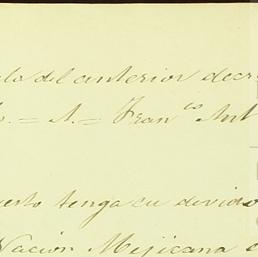 del anterior decr
= A. = Fran.co Ant
tenga su divido
Nacion Mejicana